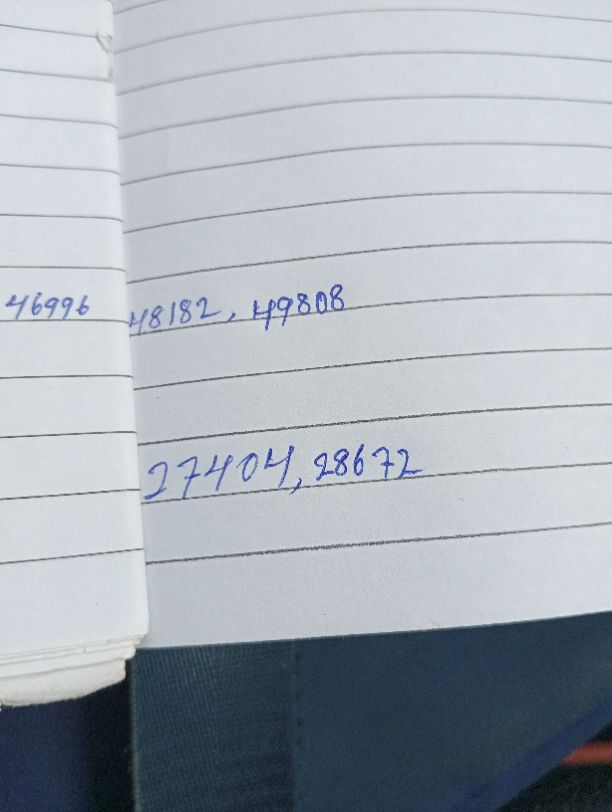 46996 48182, 49808
27404, 28672